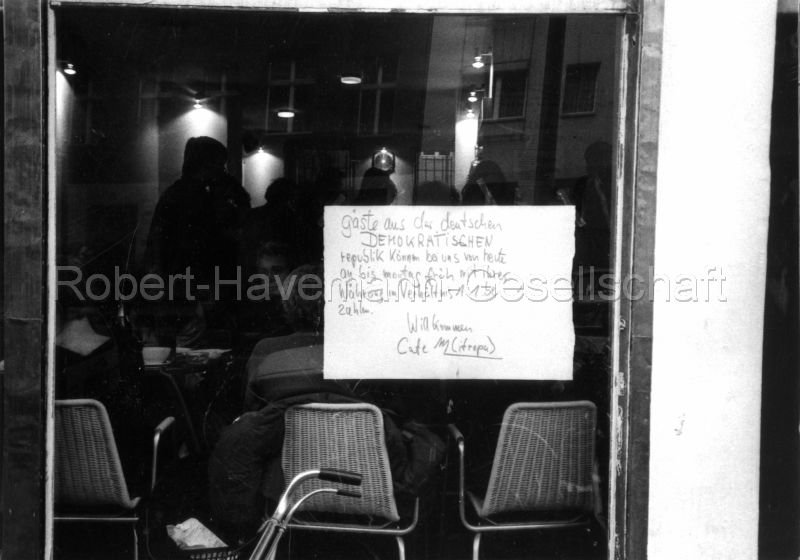 gäste aus der deutschen
DEMOKRATISCHEN
republik können bei uns von heute
an bis montag früh mit ihrer
Währung im Verhältnis 1:1
zahlen.
Willkommen
Cafe M(itropa)
Robert-Havemann-Gesellschaft